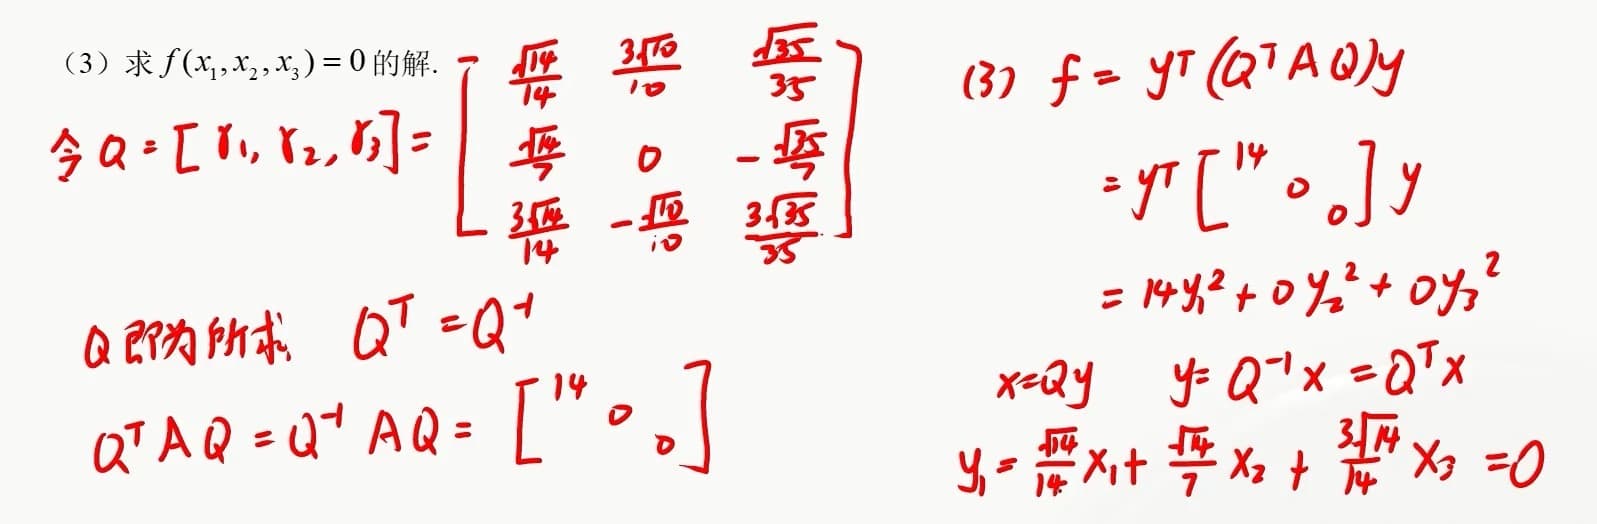 （3）求 f(x₁, x₂, x₃) = 0 的解.
令 Q = [γ₁, γ₂, γ₃] = [ √14/14 3√10/10 √35/35
√14/7 0 -√35/7
3√14/14 -√10/10 3√35/35 ]
Q 即为所求 Qᵀ = Q⁻¹
QᵀAQ = Q⁻¹AQ = [ 14 0 0 ]
(3) f = yᵀ(QᵀAQ)y
= yᵀ[ 14 0 0 ]y
= 14y₁² + 0y₂² + 0y₃²
x=Qy y= Q⁻¹x = Qᵀx
y₁ = √14/14 x₁ + √14/7 x₂ + 3√14/14 x₃ = 0